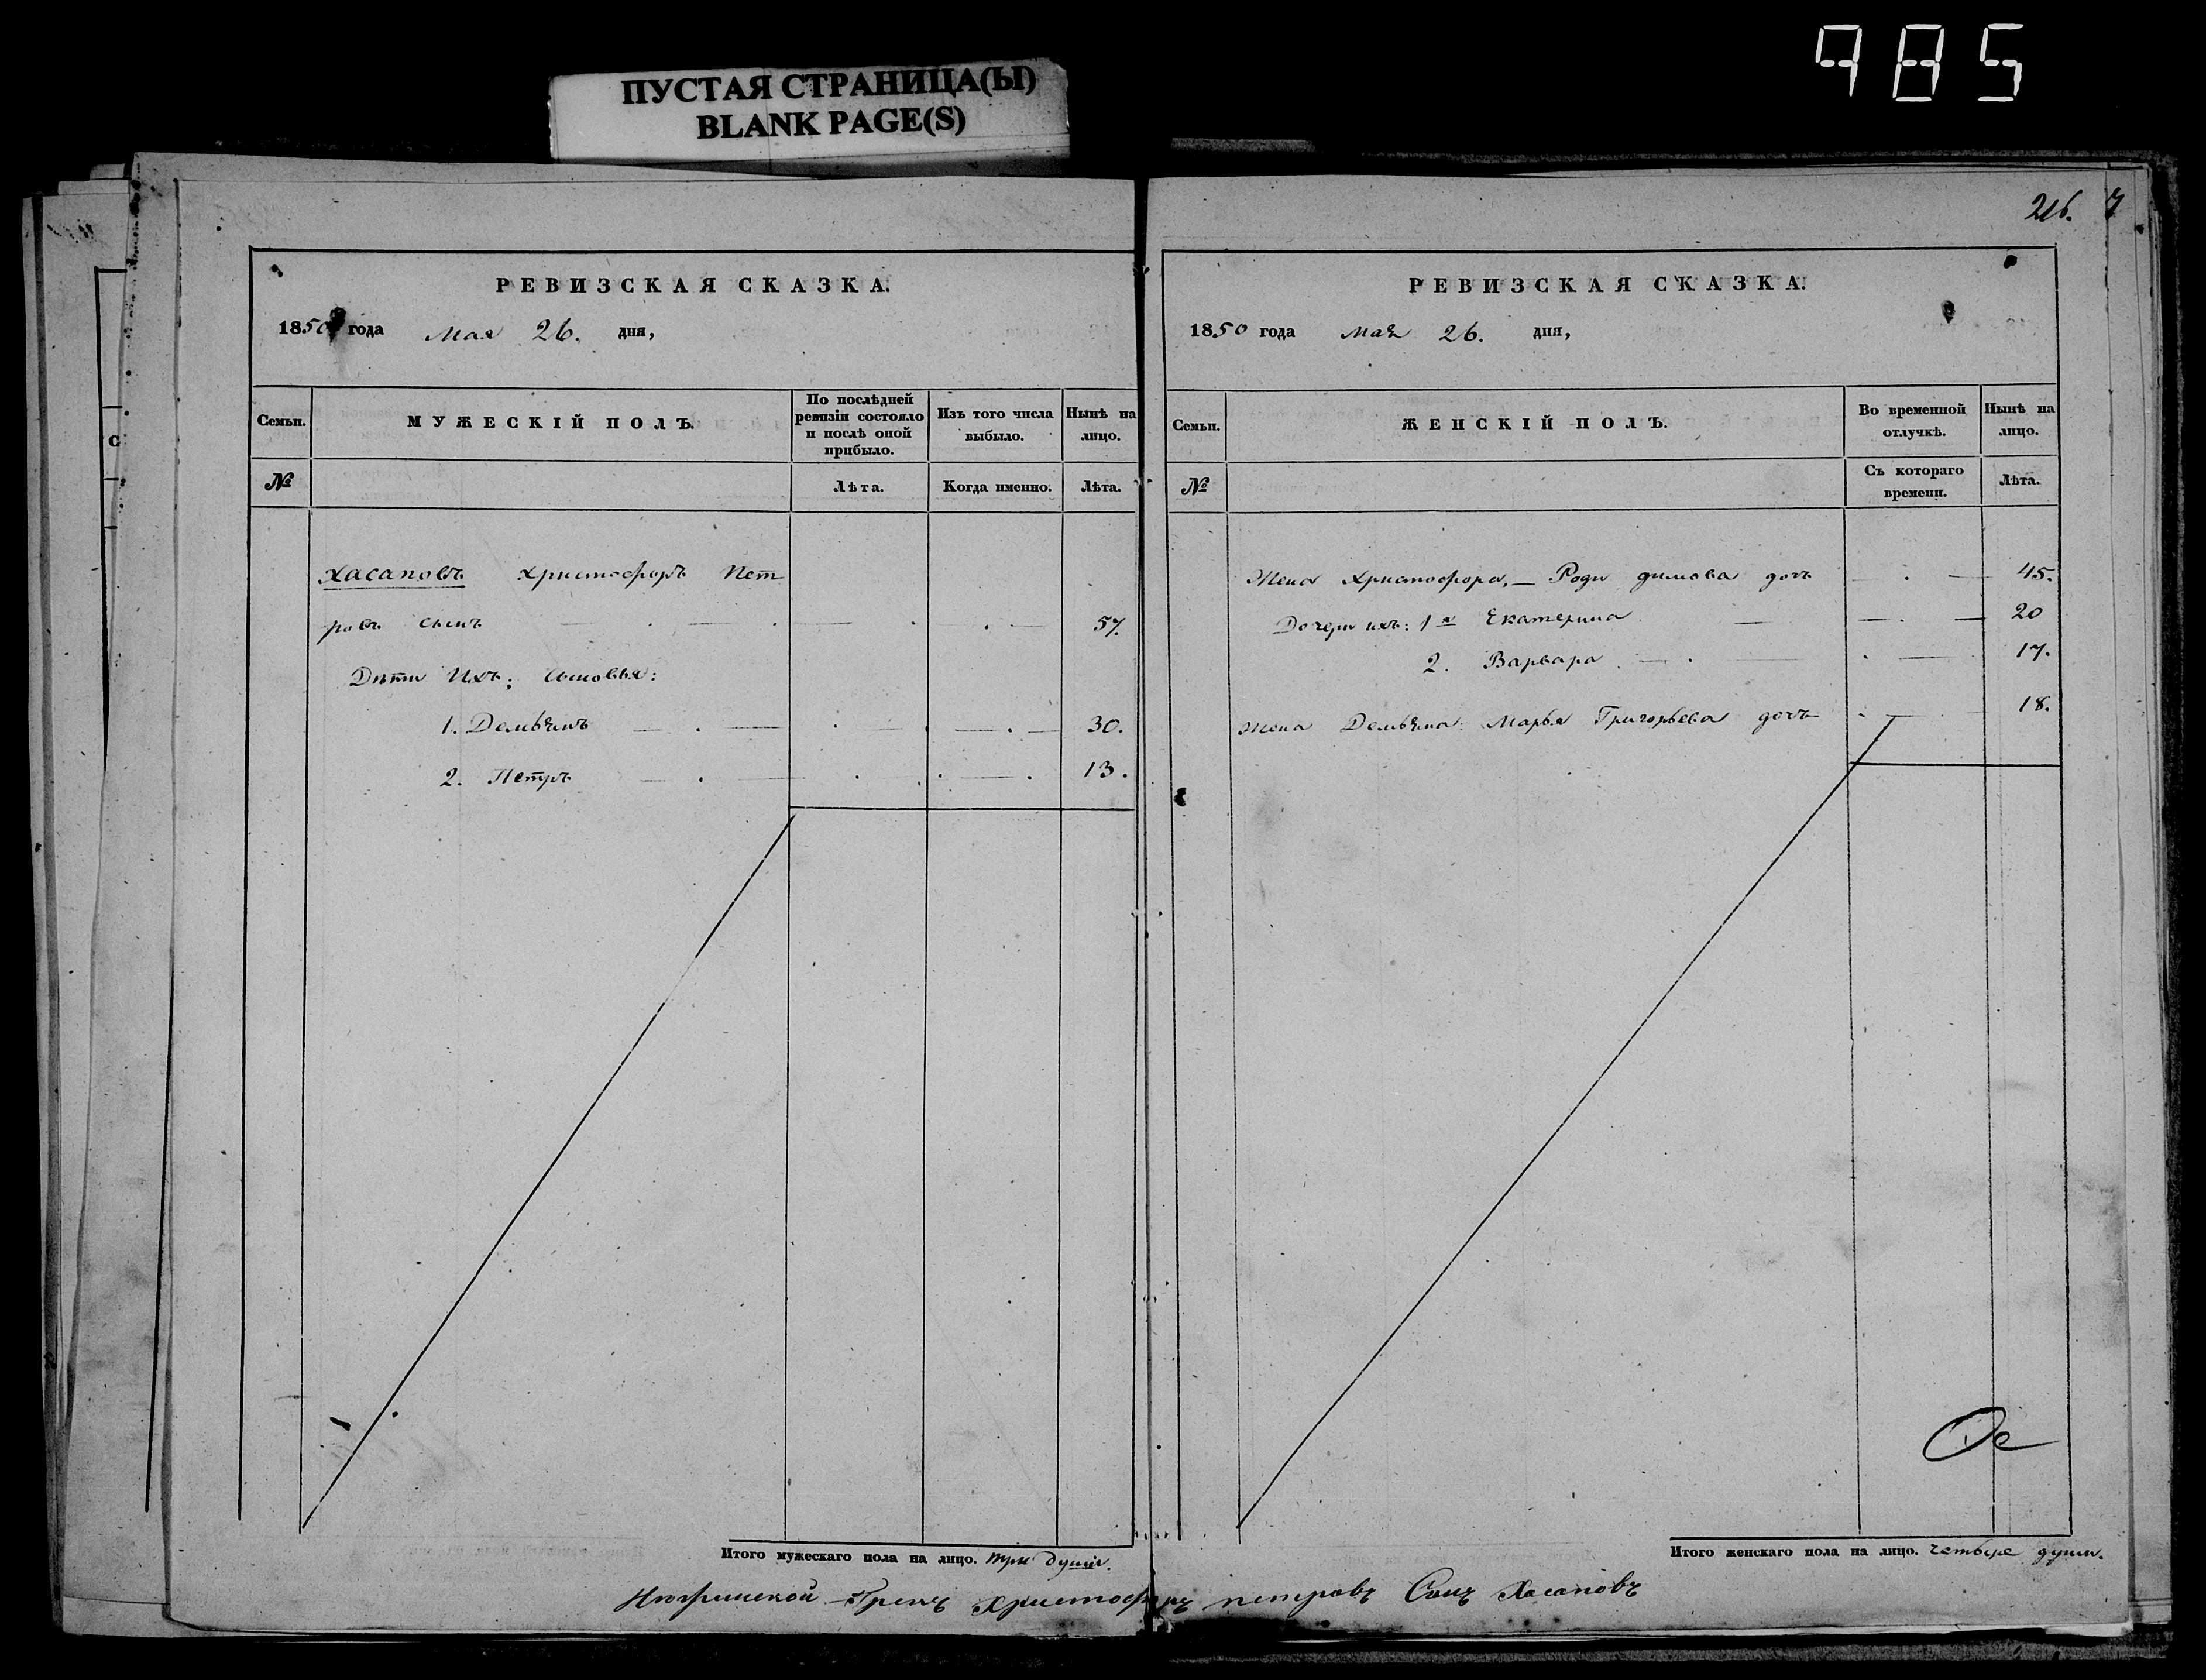 985
ПУСТАЯ СТРАНИЦА(Ы)
BLANK PAGE(S)
РЕВИЗСКАЯ СКАЗКА.
1850 года Мая 26. дня,
Семьи.
МУЖЕСКІЙ ПОЛЪ.
По послѣдней
ревизіи состояло
и послѣ оной
прибыло.
Изъ того числа
выбыло.
Нынѣ на
лицо.
№
Лѣта.
Когда именно.
Лѣта.
Хасаповъ Христофоръ Пет
ровъ сынъ 57.
Дѣти Ихъ; сыновья:
1. Демьянъ 30.
2. Петръ 13.
Итого мужескаго пола на лицо. три души.
216. 7
РЕВИЗСКАЯ СКАЗКА.
1850 года мая 26. дня,
Семьи.
ЖЕНСКІЙ ПОЛЪ.
Во временной
отлучкѣ.
Нынѣ на
лицо.
№
Съ котораго
времени.
Лѣта.
Жена Христофора,— Роди димова дочь 45.
Дочери ихъ: 1я Екатерина 20
2. Варвара 17.
Жена Демьяна: Марья Григорьева дочь 18.
Итого женскаго пола на лицо. четыре души.
Грекъ Христофоръ петровъ Сынъ Хасаповъ